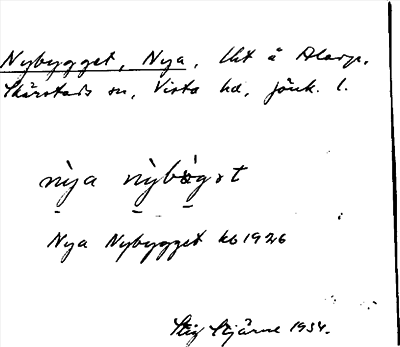 Nybygget, Nya, lht å Alarp,
Skärstads sn, Vista hd, Jönk. l.
nỳa nỳbøgət
Nya Nybygget kb 1926
Stig Stjärne 1934.